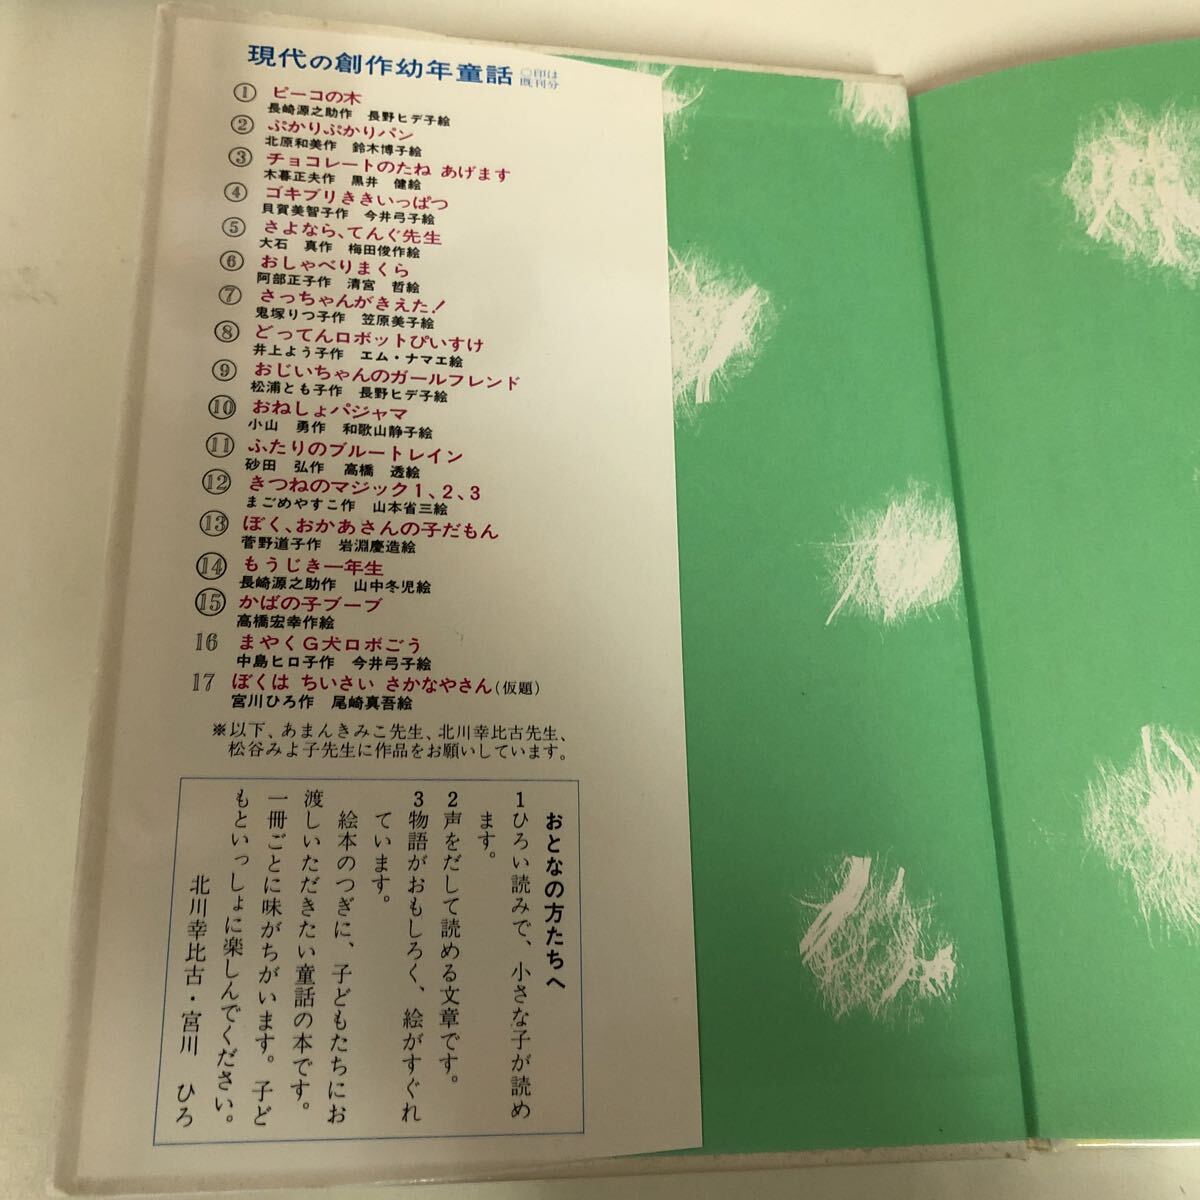 現代の創作幼年童話 ○印は既刊分
① ピーコの木
長崎源之助作 長野ヒデ子絵
② ぷかりぷかりパン
北原和美作 鈴木博子絵
③ チョコレートのたね あげます
木暮正夫作 黒井 健絵
④ ゴキブリききいっぱつ
貝賀美智子作 今井弓子絵
⑤ さよなら、てんぐ先生
大石 真作 梅田俊作絵
⑥ おしゃべりまくら
阿部正子作 清宮 哲絵
⑦ さっちゃんがきえた!
鬼塚りつ子作 笠原美子絵
⑧ どってんロボットぴいすけ
井上よう子作 エム・ナマエ絵
⑨ おじいちゃんのガールフレンド
松浦とも子作 長野ヒデ子絵
⑩ おねしょパジャマ
小山 勇作 和歌山静子絵
⑪ ふたりのブルートレイン
砂田 弘作 高橋 透絵
⑫ きつねのマジック1、2、3
まごめやすこ作 山本省三絵
⑬ ぼく、おかあさんの子だもん
菅野道子作 岩淵慶造絵
⑭ もうじき一年生
長崎源之助作 山中冬児絵
⑮ かばの子ブープ
高橋宏幸作絵
16 まやくG犬ロボごう
中島ヒロ子作 今井弓子絵
17 ぼくは ちいさい さかなやさん(仮題)
宮川ひろ作 尾崎真吾絵
※以下、あまんきみこ先生、北川幸比古先生、
松谷みよ子先生に作品をお願いしています。
おとなの方たちへ
1ひろい読みで、小さな子が読め
ます。
2声をだして読める文章です。
3物語がおもしろく、絵がすぐれ
ています。
絵本のつぎに、子どもたちにお
渡しいただきたい童話の本です。
一冊ごとに味がちがいます。子ど
もといっしょに楽しんでください。
北川幸比古・宮川 ひろ